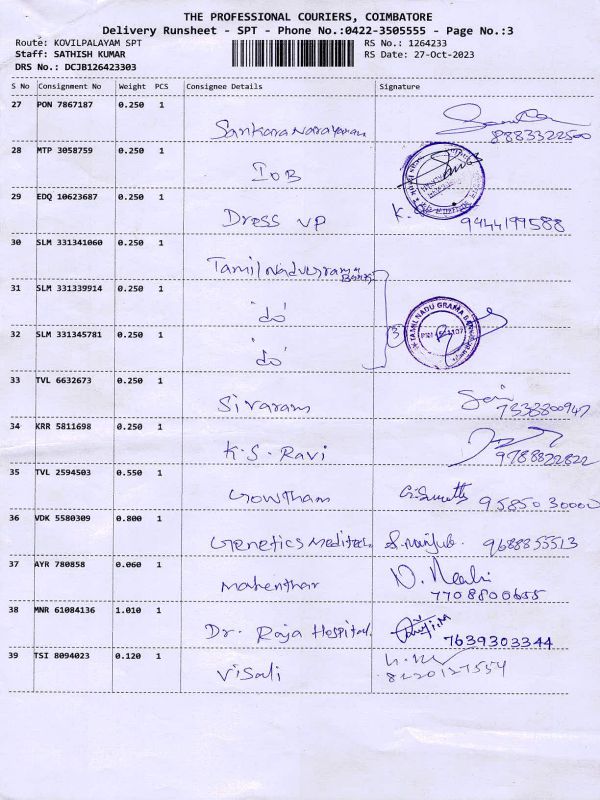 THE PROFESSIONAL COURIERS, COIMBATORE
Delivery Runsheet - SPT - Phone No.:0422-3505555 - Page No.:3
Route: KOVILPALAYAM SPT
RS No.: 1264233
Staff: SATHISH KUMAR
RS Date: 27-Oct-2023
DRS No.: DCJB126423303
S No Consignment No Weight PCS Consignee Details Signature
27 PON 7867187 0.250 1
Sankaranarayanan 8883322500
28 MTP 3058759 0.250 1
IOB
29 EDQ 10623687 0.250 1
Dress VP K. 9444199588
30 SLM 331341060 0.250 1
Tamil Nadu Grama Bank
31 SLM 331339914 0.250 1
"do"
TAMILNADU GRAMA BANK
3
32 SLM 331345781 0.250 1
"do"
33 TVL 6632673 0.250 1
Sivaram 7538800947
34 KRR 5811698 0.250 1
K.S. Ravi 9788822822
35 TVL 2594503 0.550 1
Gowtham 9585030000
36 VDK 5580309 0.800 1
Genetics Meditech. 9688855513
37 AYR 780858 0.060 1
Mahenthar 7708800655
38 MNR 61084136 1.010 1
Dr. Raja Hospital. 7639303344
39 TSI 8094023 0.120 1
Visali 8220127554